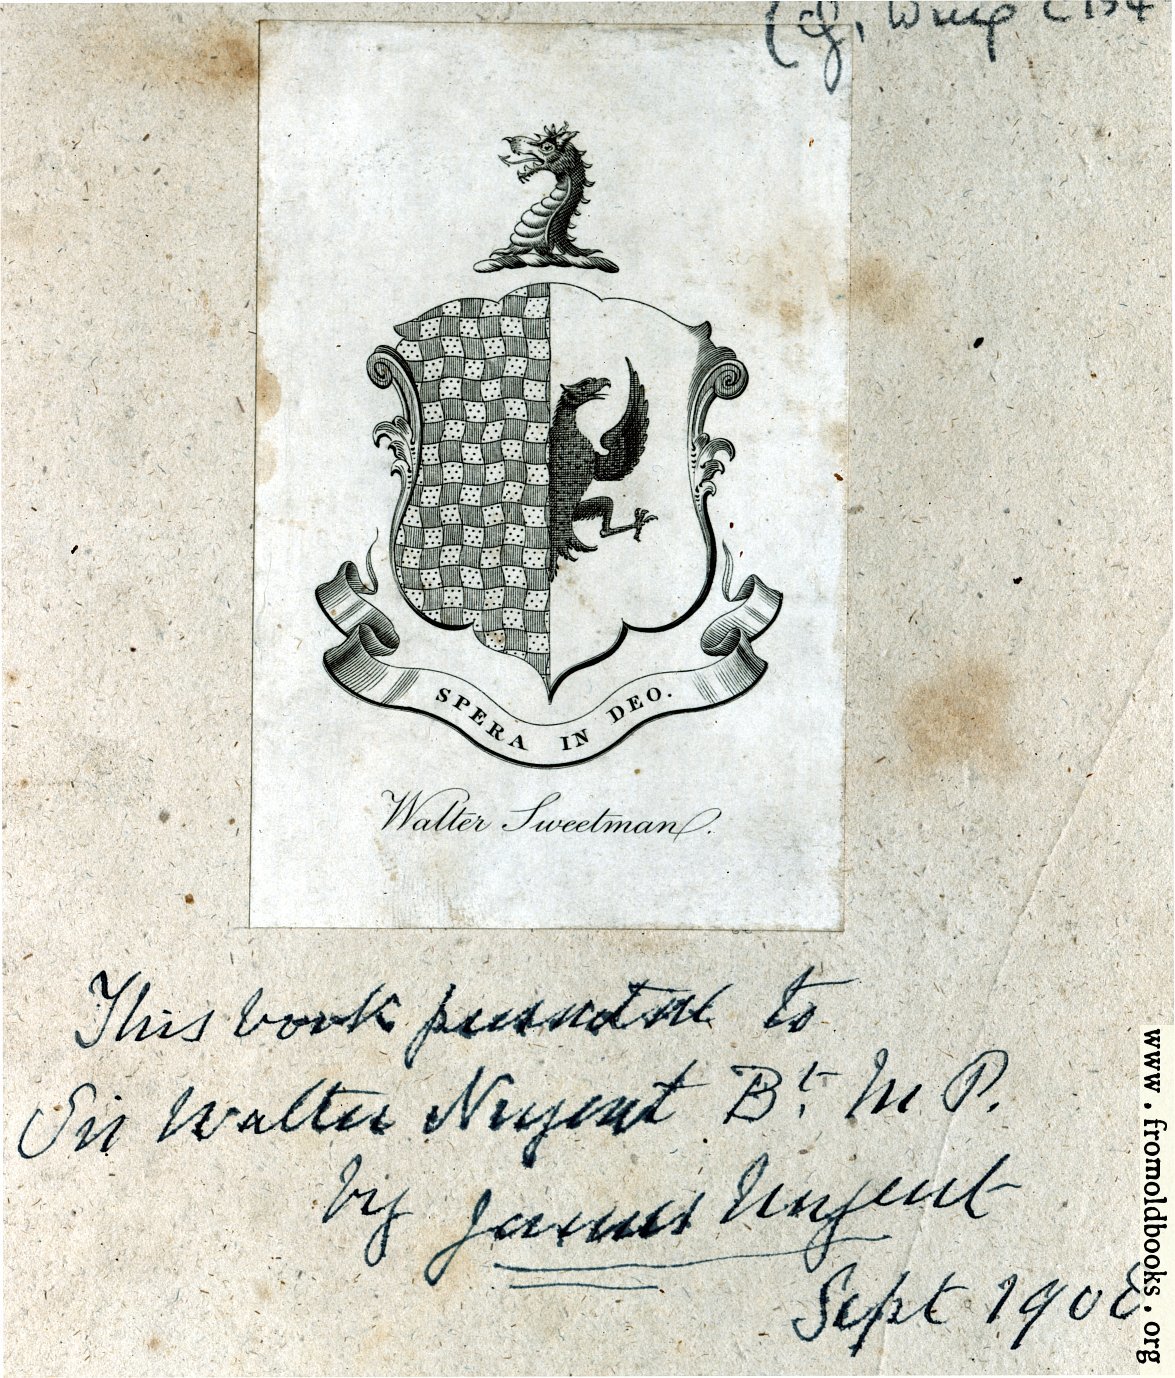 SPERA IN DEO.
Walter Sweetman.
This book presented to
Sir Walter Nugent Bt. M P.
by James Nugent
Sept 1908
www.fromoldbooks.org